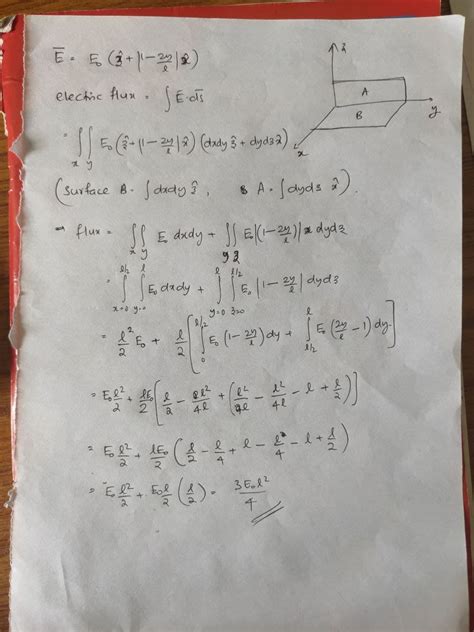 E̅ = E₀ (ẑ + |1 − 2y/l| x̂)
electric flux = ∫ E̅·d̅s̅
= ∬_{x y} E₀(ẑ + |1 − 2y/l| x̂) (dxdy ẑ + dydz x̂)
(surface B = ∫dxdy ẑ, & A = ∫dydz x̂).
flux = ∬_{x y} E₀ dxdy + ∬_{y z} E₀|(1 − 2y/l)| dydz
= ∫_{x=0}^{l/2} ∫_{y=0}^{l} E₀ dxdy + ∫_{y=0}^{l} ∫_{z=0}^{l/2} E₀ |1 − 2y/l| dydz
= l²/2 E₀ + l/2 [∫_0^{l/2} E₀ (1 − 2y/l) dy + ∫_{l/2}^{l} E₀ (2y/l − 1) dy.]
= E₀l²/2 + lE₀/2 [l/2 − l²/4l + (l²/l − l²/4l − l + l/2)]
= E₀ l²/2 + lE₀/2 (l/2 − l/4 + l − l/4 − l + l/2)
= E₀ l²/2 + E₀l/2 (l/2) = 3E₀l²/4
z
A
B
y
x